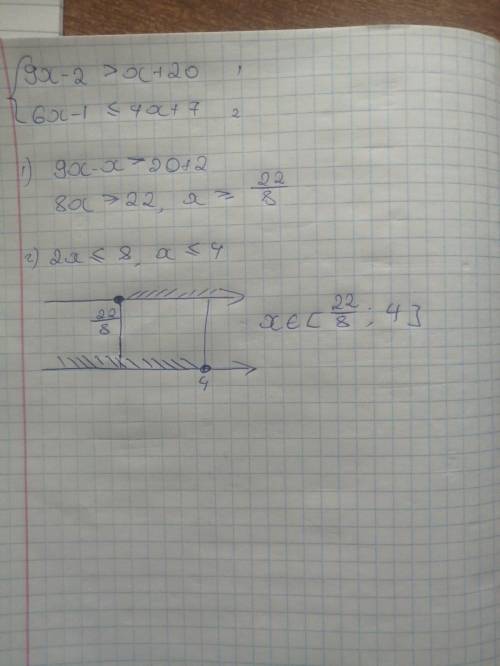 { 9x-2 > x+20 1
6x-1 ≤ 4x+7 2
1) 9x-x > 20+2
8x > 22, x ≥ 22/8
2) 2x ≤ 8, x ≤ 4
22/8
4
x∈[22/8; 4]